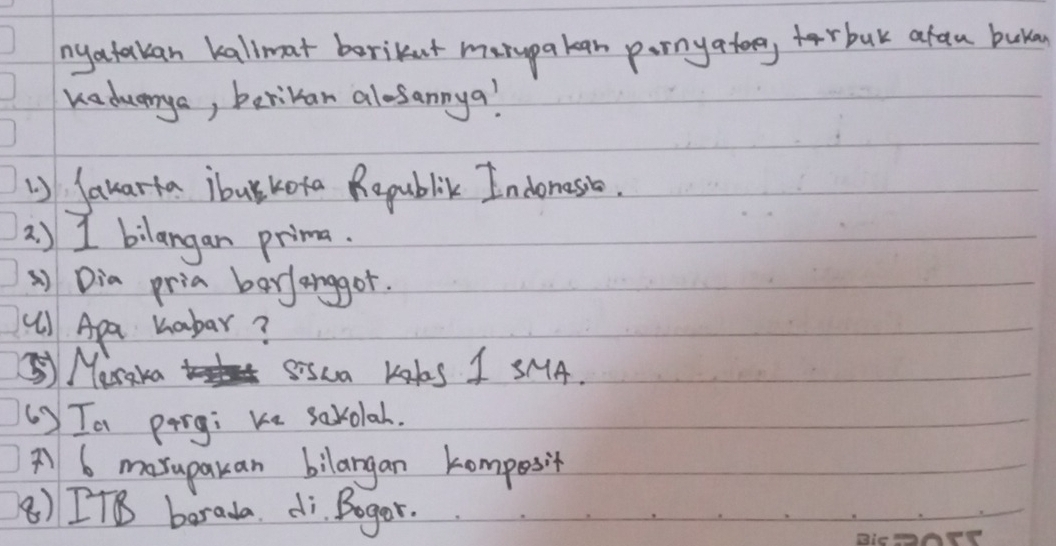 nyatakan kalimat berikut merupakan pernyataan, terbuk atau bukan
keduanya, berikan alasannya!
1.) Jakarta ibu kota Republik Indonesia.
2.) 1 bilangan prima.
3) Dia pria berjanggot.
4) Apa kabar?
5) Mereka siswa kelas 1 SMA.
6) Ia pergi ke sekolah.
7) 6 merupakan bilangan komposit
8) ITB berada di Bogor.